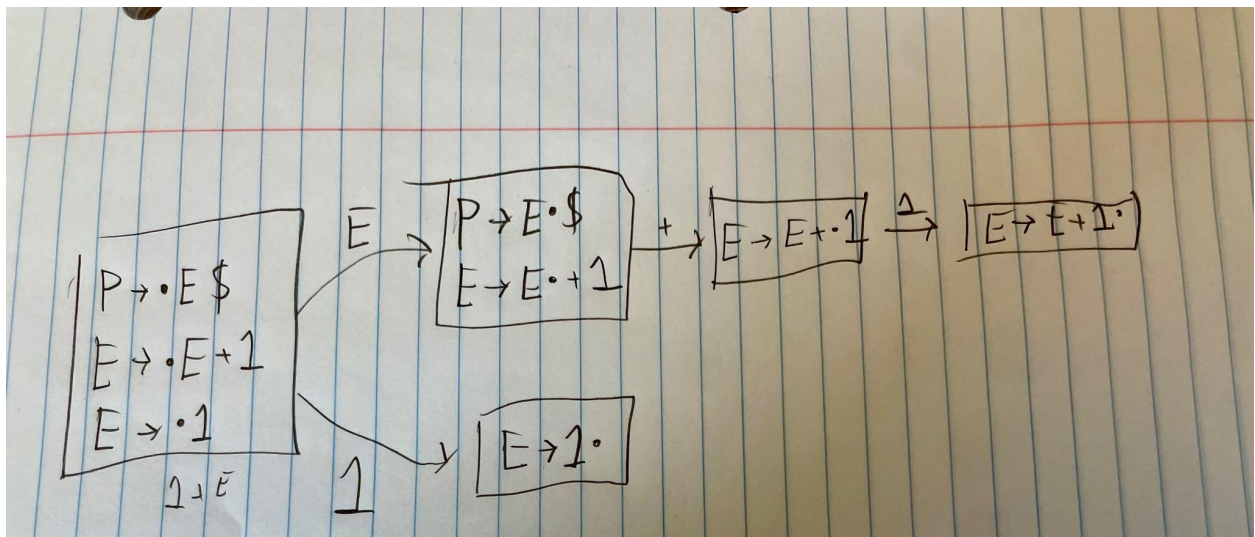 P → ·E $
E → ·E + 1
E → ·1
E
P → E·$
E → E· + 1
+
E → E + ·1
1
E → E + 1·
1
E → 1·